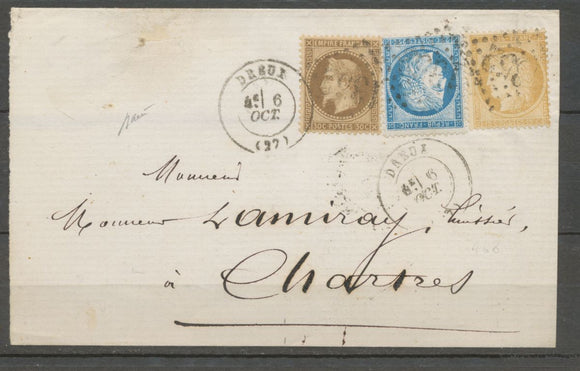 EMPIRE FRANC
30C POSTES 30C
DREUX
6
OCT.
(27)
REPUB. FRANC.
DREUX
6
OCT.
Monsieur
Monsieur Lamiray, huissier,
à Chartres